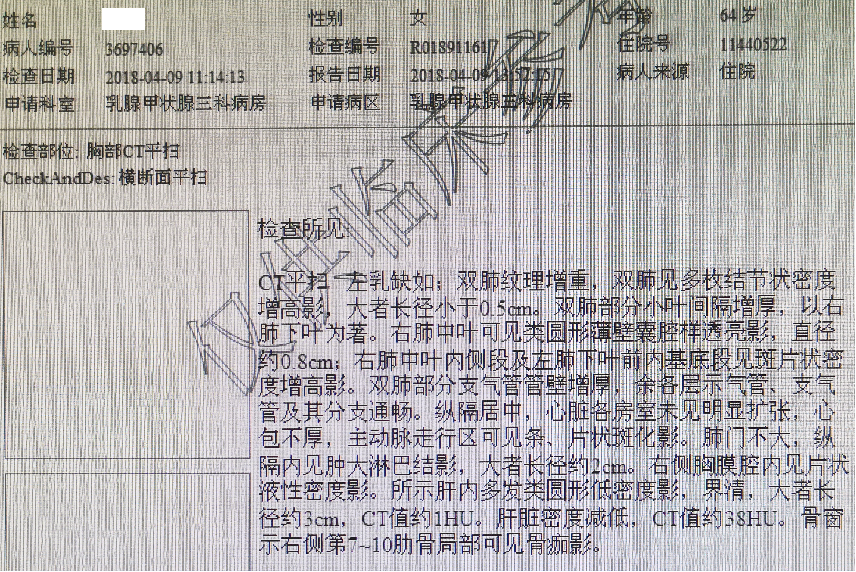 姓名 性别 女 年龄 64 岁
病人编号 3697406 检查编号 R01891161 住院号 11440522
检查日期 2018-04-09 11:14:13 报告日期 2018-04-09 病人来源 住院
申请科室 乳腺甲状腺三科病房 申请病区 乳腺甲状腺三科病房
检查部位: 胸部CT平扫
CheckAndDes: 横断面平扫
检查所见
CT平扫 左乳缺如；双肺纹理增重，双肺见多枚结节状密度
增高影，大者长径小于0.5cm。双肺部分小叶间隔增厚，以右
肺下叶为著。右肺中叶可见类圆形薄壁囊腔样透亮影，直径
约0.8cm；右肺中叶内侧段及左肺下叶前内基底段见斑片状密
度增高影。双肺部分支气管管壁增厚，余各层示气管、支气
管及其分支通畅。纵隔居中，心脏各房室未见明显扩张，心
包不厚，主动脉走行区可见条、片状斑化影。肺门不大，纵
隔内见肿大淋巴结影，大者长径约2cm。右侧胸膜腔内见片状
液性密度影。所示肝内多发类圆形低密度影，界清，大者长
径约3cm，CT值约1HU。肝脏密度减低，CT值约38HU。骨窗
示右侧第7~10肋骨局部可见骨痂影。
仅供临床